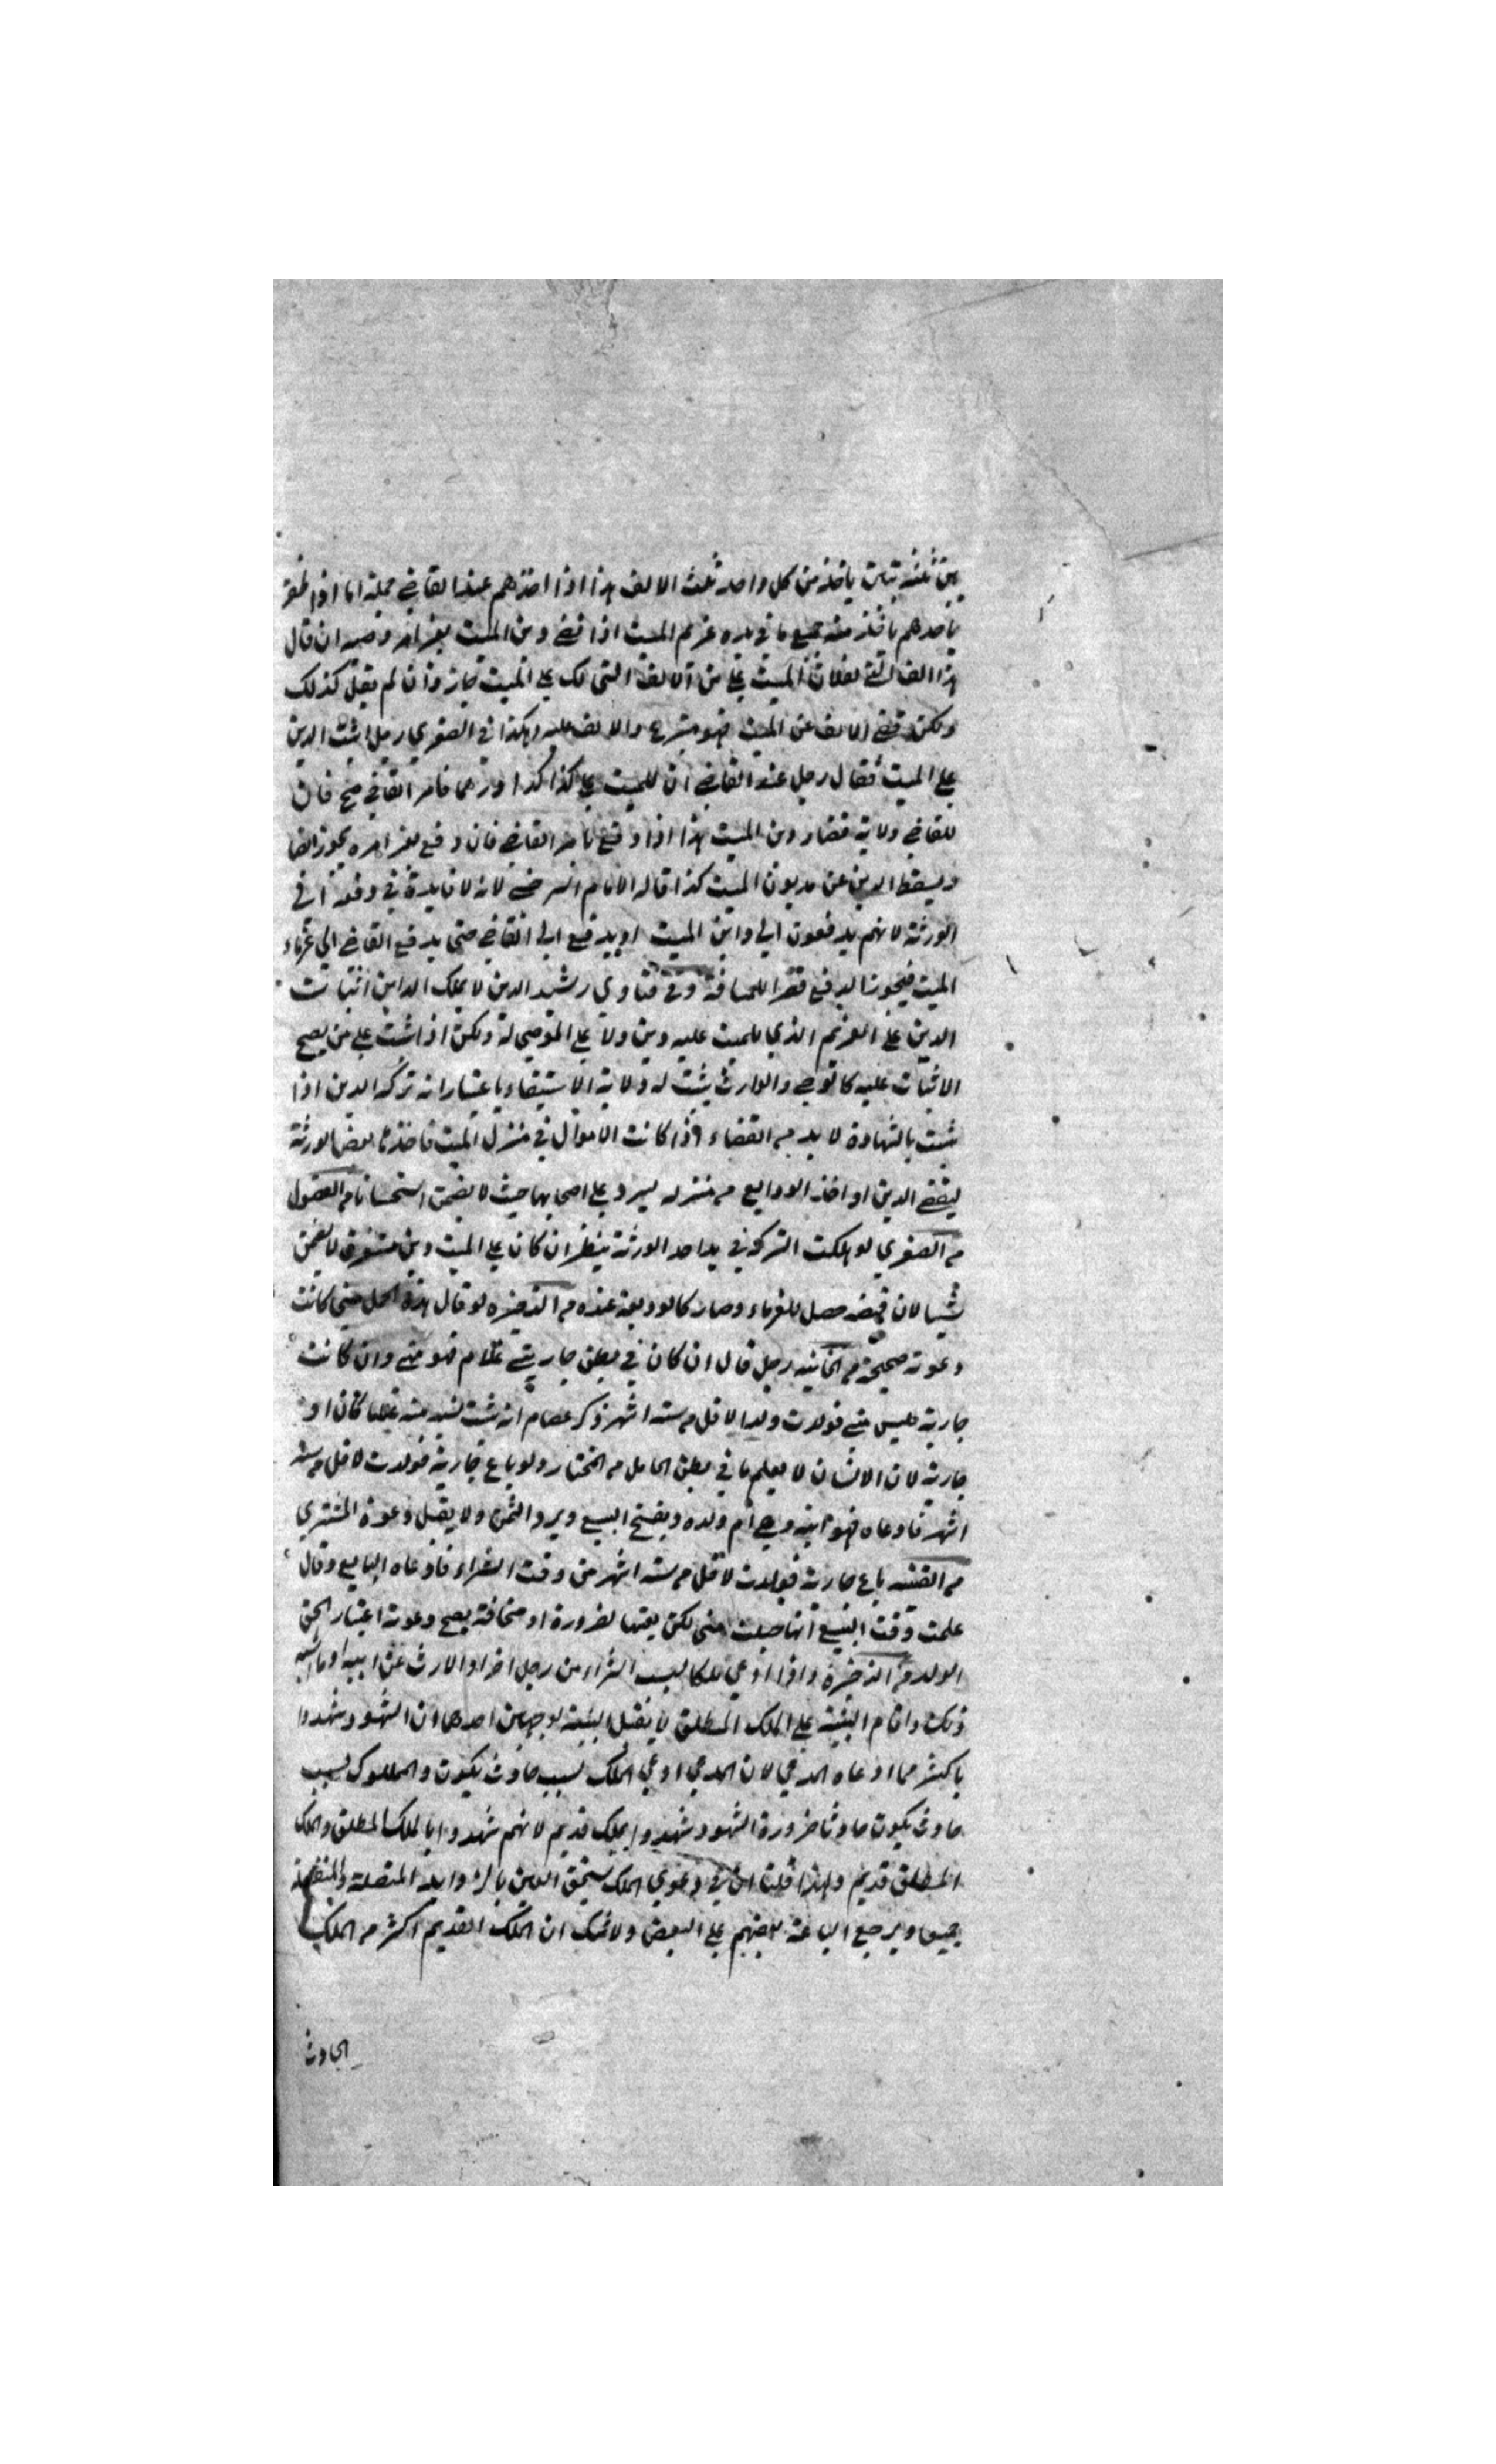 بين ثلثه بنين ياخذ من كل واحد ثلث الالف هذا اذا اخذهم عند القاضي جملة اما اذا ظفر
باحدهم ياخذ منه جميع ما في يده غريم الميت اذا قضي دين الميت بغير امر وصيه ان قال
هذا الالف التي لفلان الميت علي من الالف التي لك علي الميت جاز وان لم يقل كذلك
ولكن قضي الالف عن الميت فهو متبرع والالف عليه هكذا في الصغري رجل اثبت الدين
علي الميت فقال رجل عند القاضي ان للميت علي كذا كذا درهما فامر القاضي صح فان
للقاضي ولاية قضاء دين الميت هذا اذا دفع بامر القاضي فان دفع بغير امره يجوز ايضا
ويسقط الدين عن مديون الميت كذا قاله الامام السرخسي لانه لا فايدة في دفعه الي
الورثة لانهم يدفعون الي داين الميت او يدفع الي القاضي حتي يدفع القاضي الي غرماء
الميت فيجوز الدفع قصرا للمسافة وفي فتاوي رشيد الدين لا يملك الداين اثبات
الدين علي الغريم الذي للميت عليه دين ولا علي الموصي له ولكن اذا اثبت علي من يصح
الاثبات عليه كالوصي والوارث يثبت له ولاية الاستيفاء باعتبار انه تركه الدين اذا
ثبت بالشهادة لا بد من القضاء واذا كانت الاموال في منزل الميت فاخذها بعض الورثة
ليقضي الدين او اخذ الودايع من منزله ليرد علي اصحابها حيث لا يضمن استحسانا من الفصول
من الصغري لو هلكت التركة في يد احد الورثة ينظر ان كان علي الميت دين مستغرق لا يضمن
شيا لان قبضه حصل للغرماء وصار كالوديعة عنده من الذخيره لو قال هذه الحمل مني كانت
دعوته صحيحة من الخانيه رجل قال ان كان في بطن جاريتي غلام فهو مني وان كانت
جارية فليس مني فولدت ولدا لاقل من سته اشهر ذكر عصام انه يثبت نسبه منه غلاما كان او
جارية لان الانسان لا يعلم ما في بطن الحامل من المختار ولو باع جارية فولدت لاقل من ستة
اشهر فادعاه فهو ابنه وهي ام ولده ويفسخ البيع ويرد الثمن ولا يقبل دعوة المشتري
من القنيه باع جارية فولدت لاقل من سته اشهر من وقت الشراء فادعاه البايع وقال
علمت وقت البيع انها حبلت مني لكن بعتها لضرورة او مخافة يصح دعوته اعتبار الحق
الولد من الذخيرة واذا ادعي ملكا بسبب الشراء من رجل اخر او الارث عن ابيه او ما اشبه
ذلك واقام البينة علي الملك المطلق لا يقبل البينة لوجهين احدهما ان الشهود شهدوا
باكثر مما ادعاه المدعي لان المدعي ادعي الملك بسبب حادث يكون والمملوك بسبب
حادث يكون حادثا ضرورة الشهود شهدوا بملك قديم لانهم شهدوا بالملك المطلق والملك
المطلق قديم ولهذا قلنا ان في دعوي الملك يستحق العين بالزوايد المتصلة والمنفصلة
جميعا ويرجع الباعة بعضهم علي البعض ولا شك ان الملك القديم اكثر من الملك
الحادث